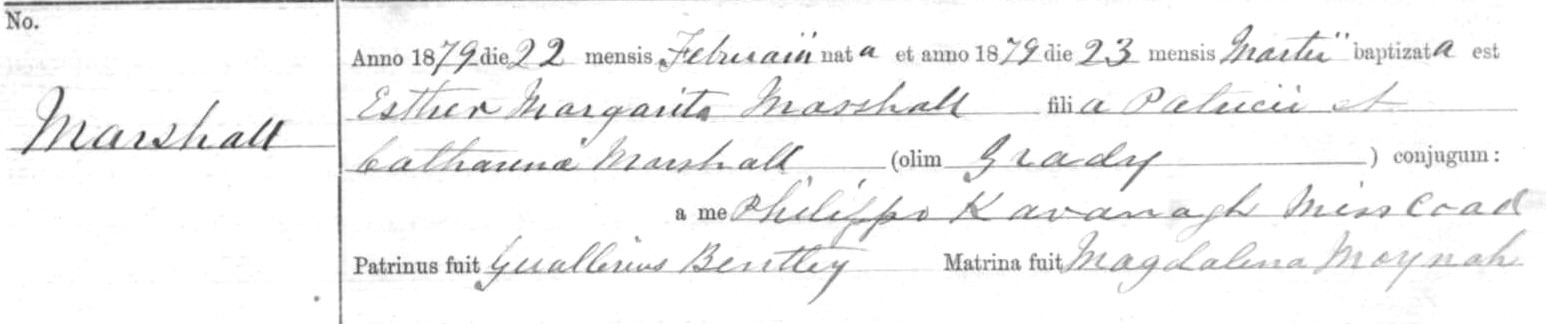 No.
Anno 1879 die 22 mensis Februarii nata et anno 1879 die 23 mensis Martii baptizata est
Marshall
Esther Margarita Marshall filia Patricii et
Catharina Marshall (olim Grady) conjugum:
a me Philippo Kavanagh Miss Coad
Patrinus fuit Guallerius Bentley Matrina fuit Magdalena Moynah